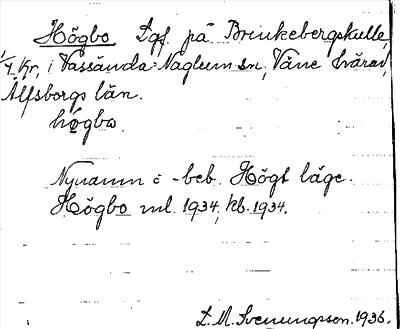 Högbo Lgf. på Brinkebergskulle,
1/4 kr, i Vassända-Naglum sn, Väne härad,
Älfsborgs län.
högbo.
Nynamn o -beb. Högt läge.
Högbo ml. 1934, kb. 1934.
L. M. Svenungsson. 1936.